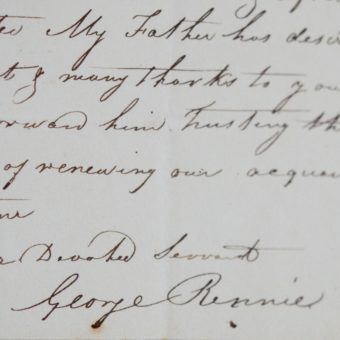 My Father has desir
t & many thanks to you
orward him trusting th
of renewing our acquai
Devoted Servant
George Rennie